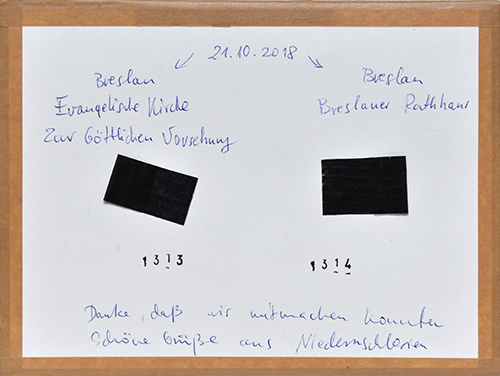 21.10.2018
Breslau
Evangelische Kirche
Zur Göttlichen Vorsehung
Breslau
Breslauer Rathhaus
1313
1314
Danke, daß wir mitmachen konnten
Schöne Grüße aus Niederschlesien